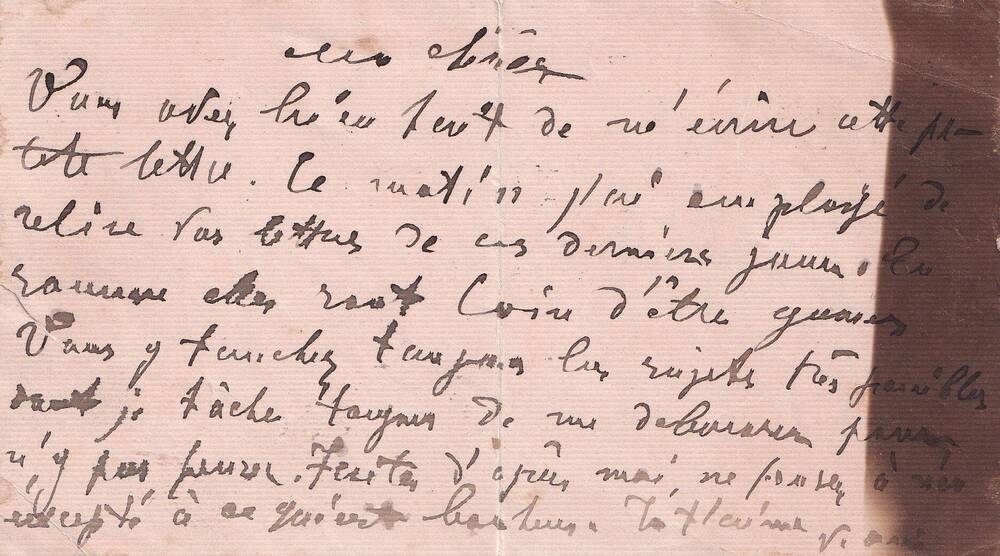 ma chère
Vous avez bien tort de m'écrire cette pe-
tite lettre. Ce matin j'ai employé de
relire vos lettres de ces derniers jours
comme elles sont loin d'être
Vous y touchez toujours les sujets très pénibles
dont je tâche toujours de me pour
n'y pas penser. Faites d'après moi, ne pensez à rien
excepté à ce qui est bonheur. Je t'aime